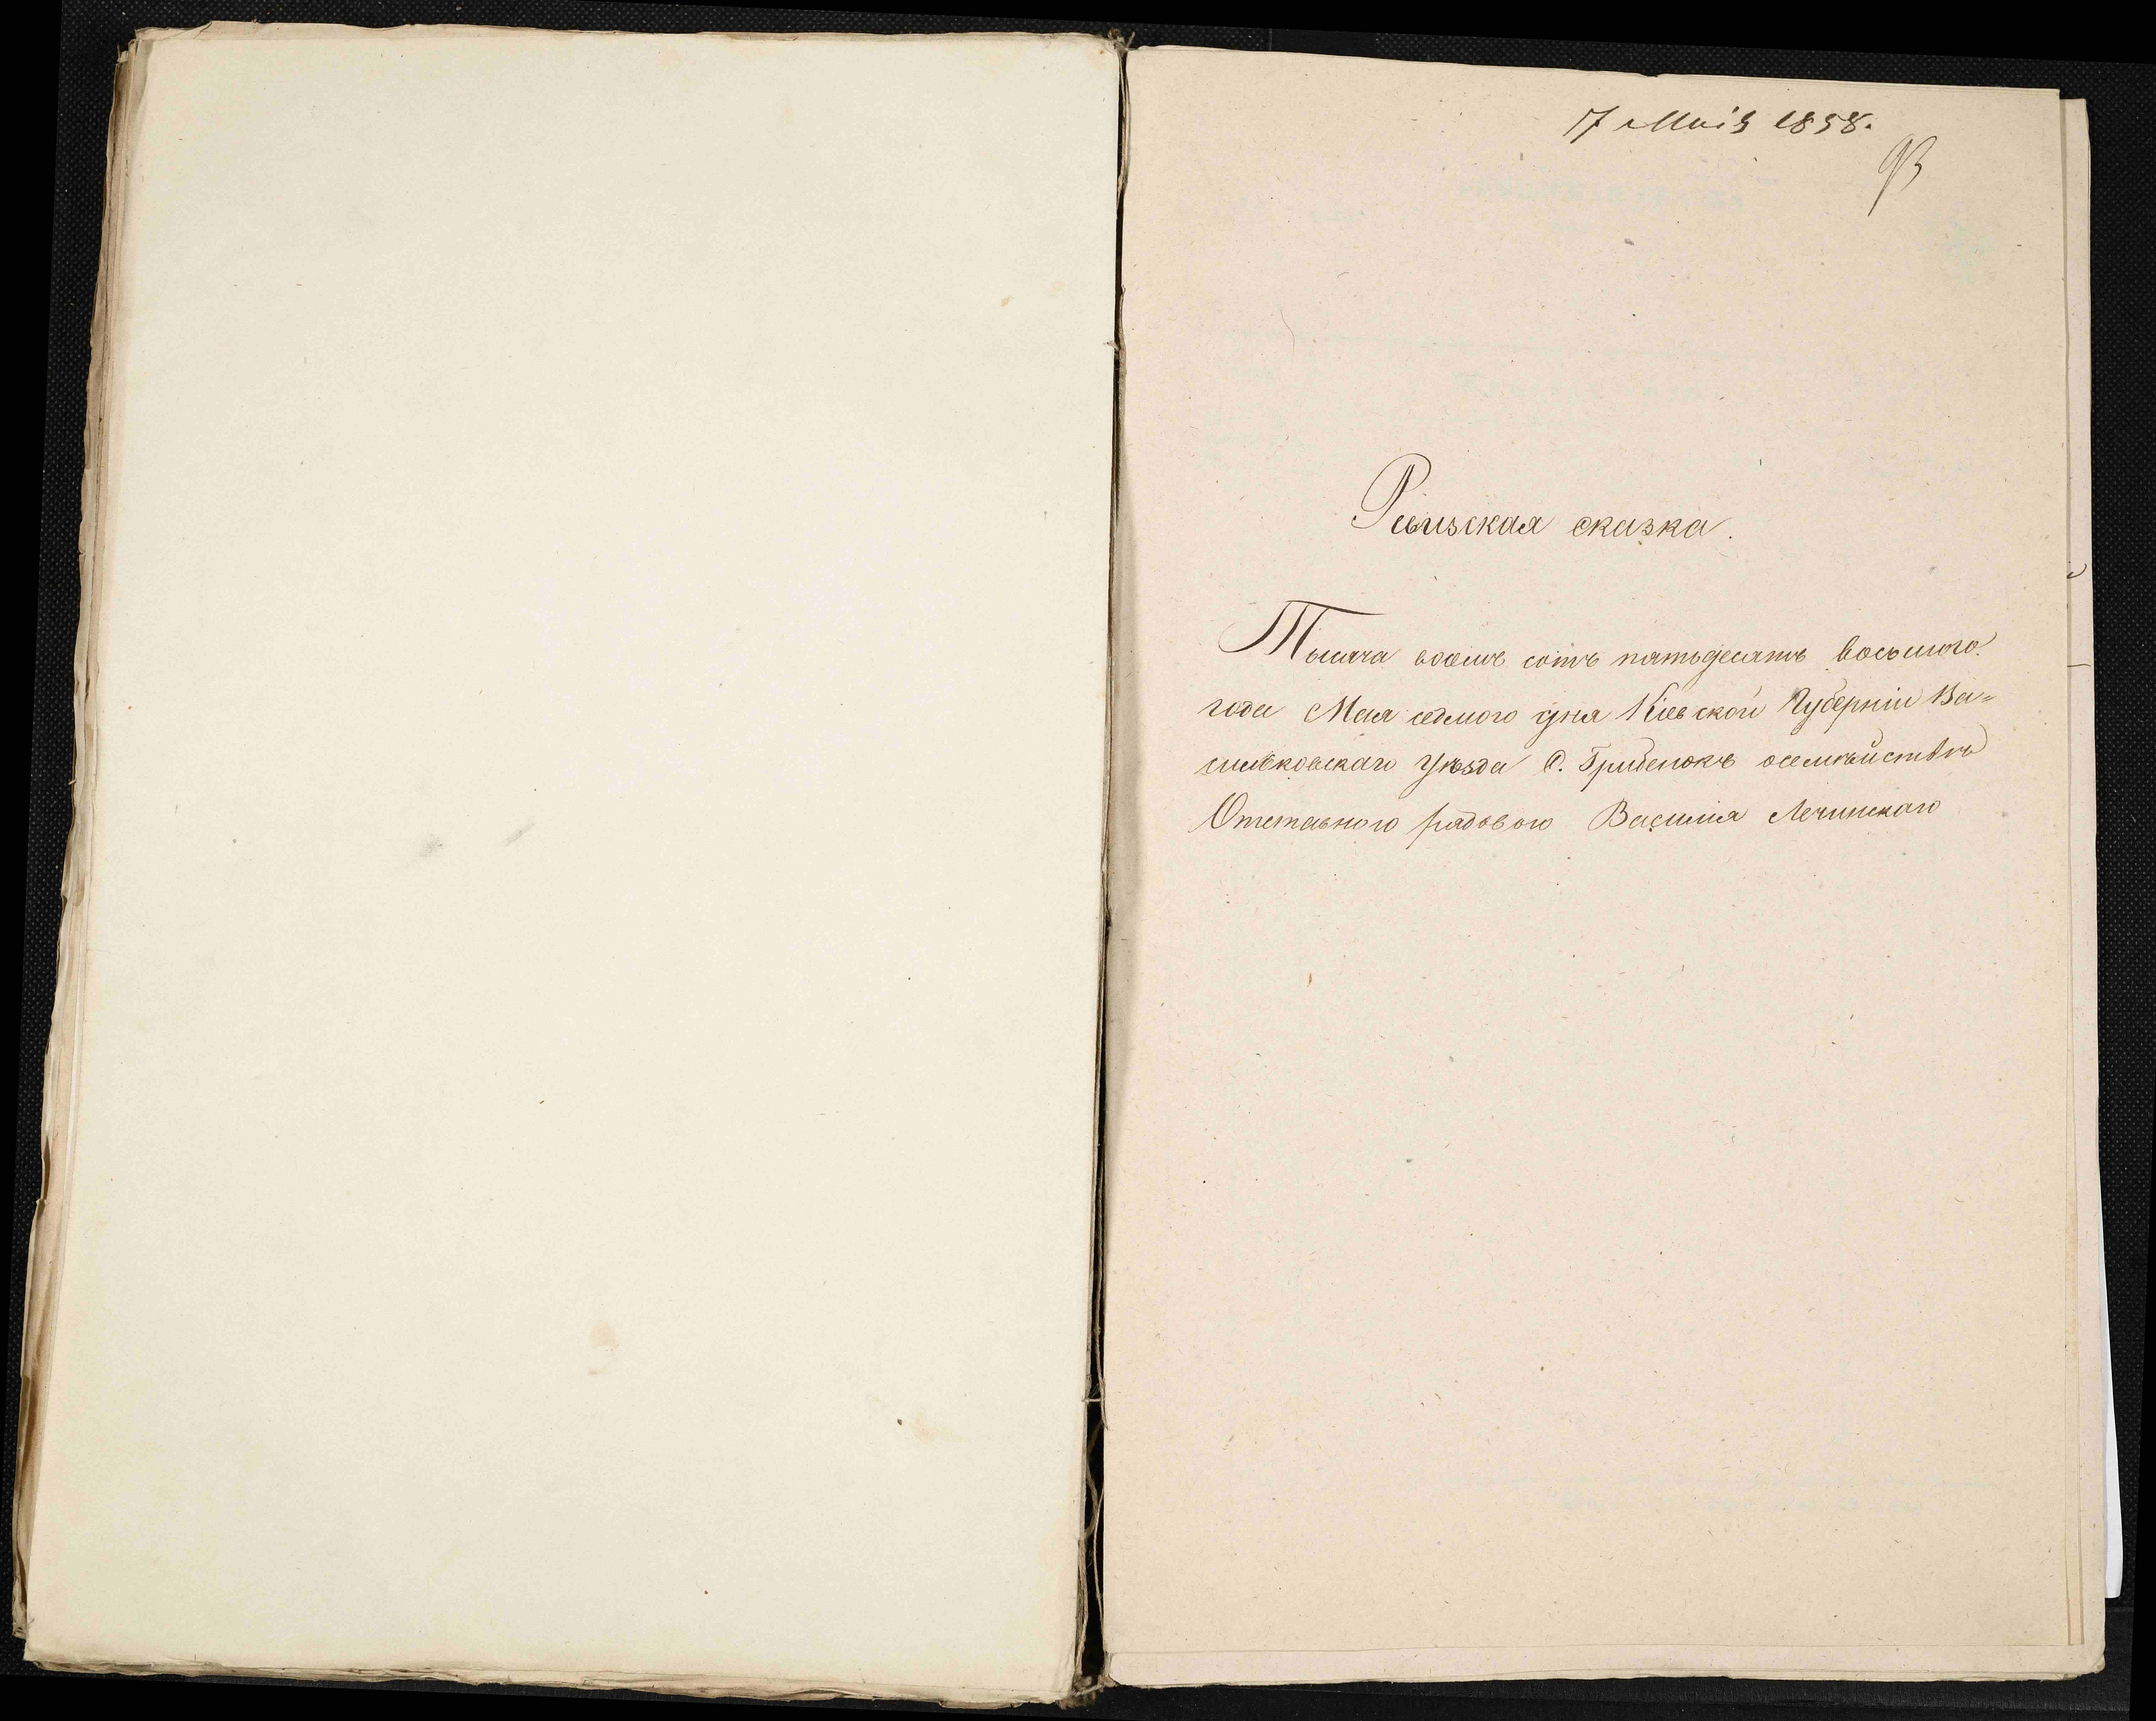 17 Маія 1858.
93
Ревизская сказка.
Тысяча восемь сотъ пятьдесятъ восьмаго
года Мая седмого дня Кіевской Губерніи Ва=
сильковскаго Уѣзда С. Гребенокъ о семѣйствѣ
Отставного рядового Василія